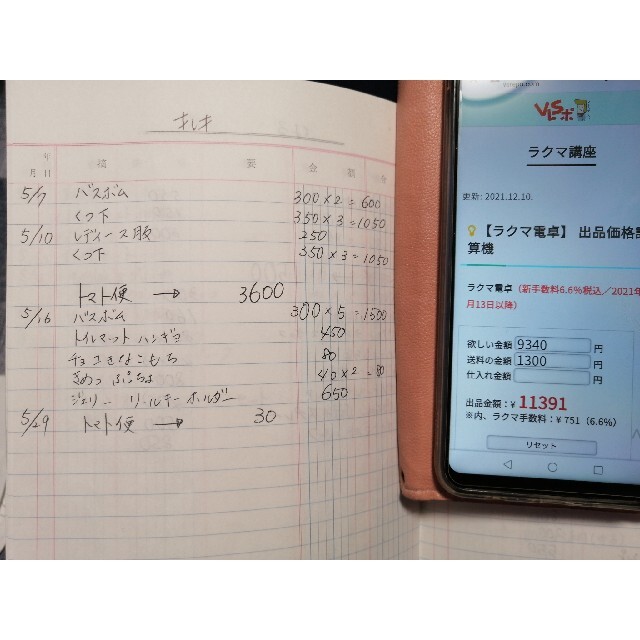 キレキ
年
月日
摘
要
金
額
5/7 バスボム 300×2=600
くつ下 350×3=1050
5/10 レディース服 250
くつ下 350×3=1050
トマト便 → 3600
5/16 バスボム 300×5=1500
トイレマット ハンギョ 450
チョコきなこもち 80
きめつ ぷちちょ 40×2=80
ジェリー リールキーホルダー 650
5/29 トマト便 → 30
ラクマ講座
更新: 2021.12.10.
【ラクマ電卓】 出品価格
算機
ラクマ電卓 (新手数料6.6%税込/2021年
月13日以降)
欲しい金額 9340 円
送料の金額 1300 円
仕入れ金額 円
出品金額:¥ 11391
※内、ラクマ手数料:¥ 751 (6.6%)
リセット